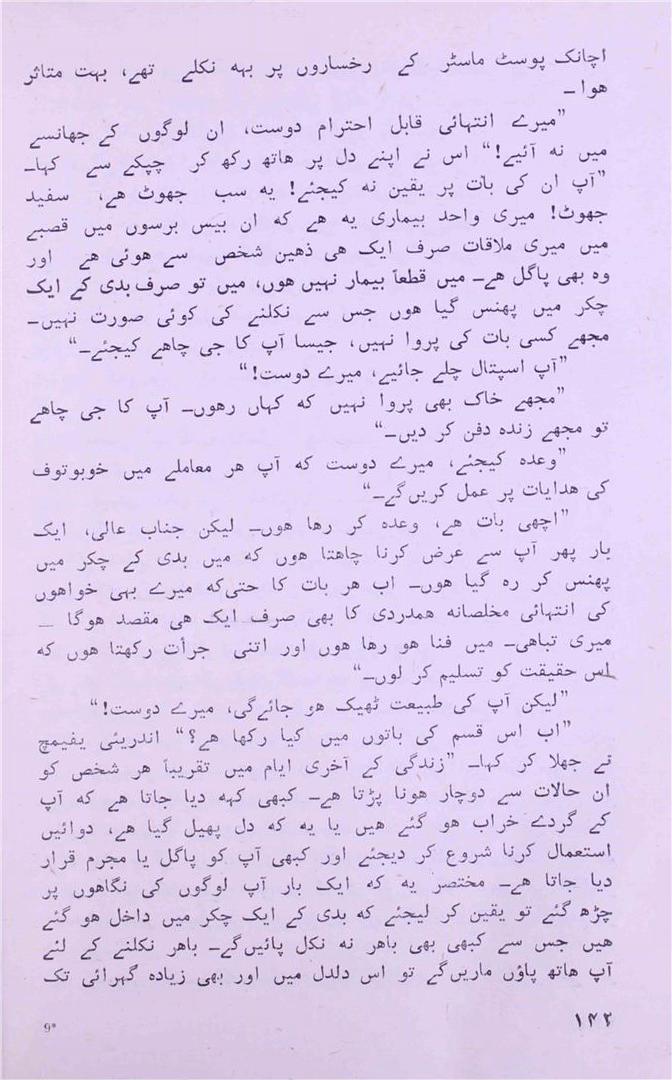 اچانک پوسٹ ماسٹر کے رخساروں پر بہہ نکلے تھے، بہت متاثر
ھوا۔
”میرے انتہائی قابل احترام دوست، ان لوگوں کے جھانسے
میں نہ آئیے!“ اس نے اپنے دل پر ھاتھ رکھ کر چپکے سے کہا۔
”آپ ان کی بات پر یقین نہ کیجئے! یہ سب جھوٹ ھے، سفید
جھوٹ! میری واحد بیماری یہ ھے کہ ان بیس برسوں میں قصبے
میں میری ملاقات صرف ایک ھی ذھین شخص سے ھوئی ھے اور
وہ بھی پاگل ھے۔ میں قطعاً بیمار نہیں ھوں، میں تو صرف بدی کے ایک
چکر میں پھنس گیا ھوں جس سے نکلنے کی کوئی صورت نہیں۔
مجھے کسی بات کی پروا نہیں، جیسا آپ کا جی چاھے کیجئے۔“
”آپ اسپتال چلے جائیے، میرے دوست!“
”مجھے خاک بھی پروا نہیں کہ کہاں رھوں۔ آپ کا جی چاھے
تو مجھے زندہ دفن کر دیں۔“
”وعدہ کیجئے، میرے دوست کہ آپ ھر معاملے میں خوبوتوف
کی ھدایات پر عمل کریں گے۔“
”اچھی بات ھے، وعدہ کر رھا ھوں۔ لیکن جناب عالی، ایک
بار پھر آپ سے عرض کرنا چاھتا ھوں کہ میں بدی کے چکر میں
پھنس کر رہ گیا ھوں۔ اب ھر بات کا حتی کہ میرے بہی خواھوں
کی انتہائی مخلصانہ ھمدردی کا بھی صرف ایک ھی مقصد ھوگا —
میری تباھی۔ میں فنا ھو رھا ھوں اور اتنی جرأت رکھتا ھوں کہ
اس حقیقت کو تسلیم کر لوں۔“
”لیکن آپ کی طبیعت ٹھیک ھو جائے گی، میرے دوست!“
”اب اس قسم کی باتوں میں کیا رکھا ھے؟“ اندریئی یفیمچ
نے جھلا کر کہا۔ ”زندگی کے آخری ایام میں تقریباً ھر شخص کو
ان حالات سے دوچار ھونا پڑتا ھے۔ کبھی کہہ دیا جاتا ھے کہ آپ
کے گردے خراب ھو گئے ھیں یا یہ کہ دل پھیل گیا ھے، دوائیں
استعمال کرنا شروع کر دیجئے اور کبھی آپ کو پاگل یا مجرم قرار
دیا جاتا ھے۔ مختصر یہ کہ ایک بار آپ لوگوں کی نگاھوں پر
چڑھ گئے تو یقین کر لیجئے کہ بدی کے ایک چکر میں داخل ھو گئے
ھیں جس سے کبھی بھی باھر نہ نکل پائیں گے۔ باھر نکلنے کے لئے
آپ ھاتھ پاؤں ماریں گے تو اس دلدل میں اور بھی زیادہ گہرائی تک
۱۴۲
9*